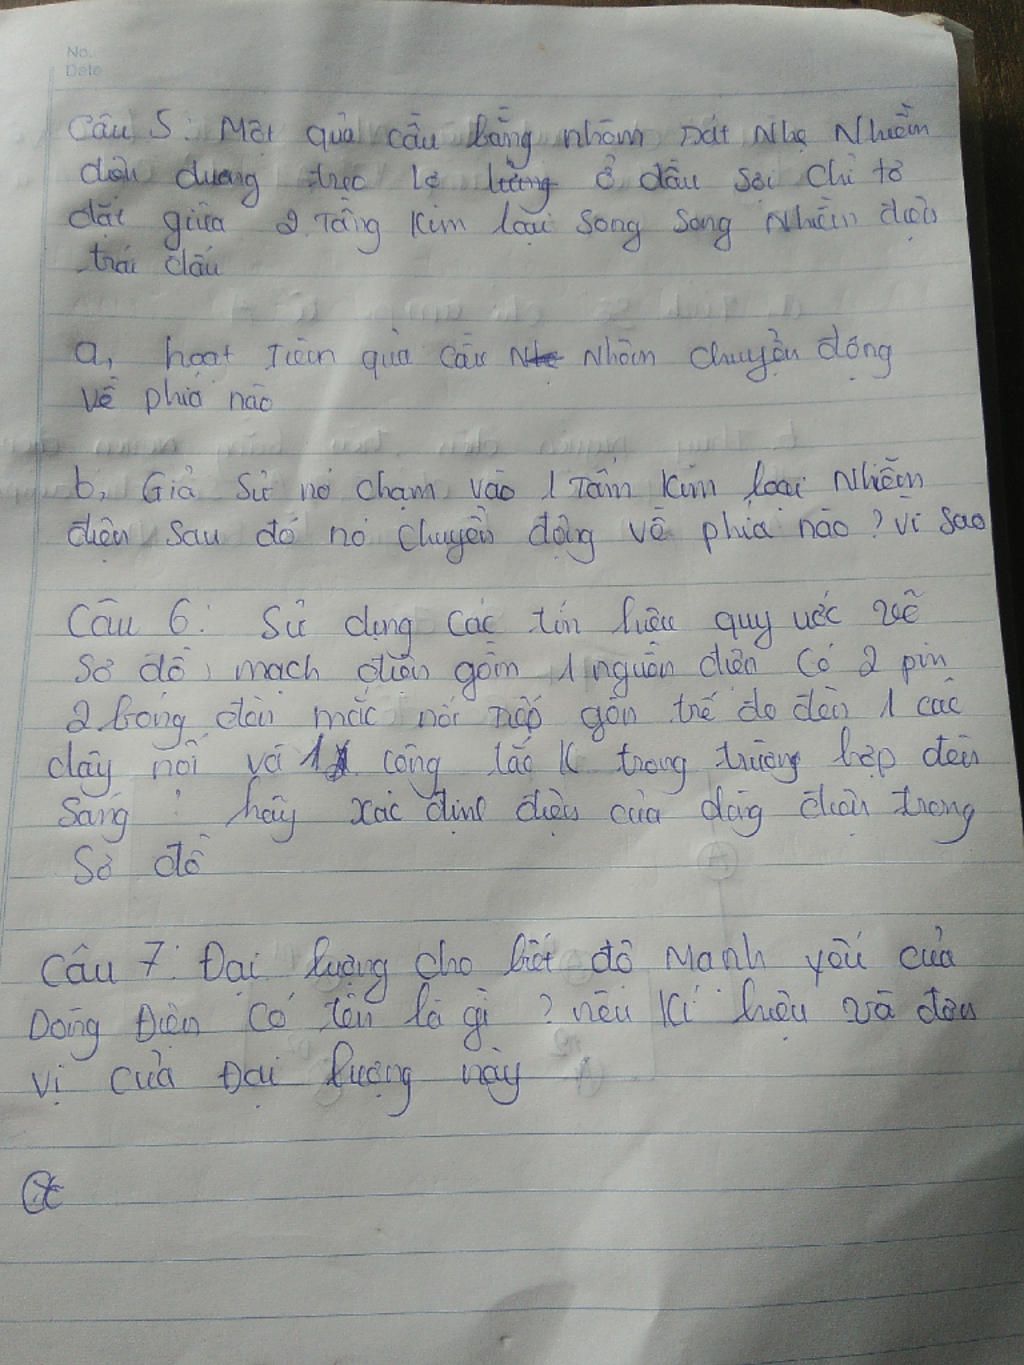 No.
Date
Câu 5: Một quả cầu bằng nhôm rất nhẹ Nhiễm
điện dương treo lơ lửng ở đầu sợi chỉ tơ
đặt giữa 2 tầng kim loại song song Nhiễm điện
trái dấu
a, hoạt tiên quả cầu Nhôm chuyển động
về phía nào
b, Giả sử nó chạm vào 1 tấm kim loại Nhiễm
điện sau đó nó chuyển động về phía nào? vì sao
Câu 6: Sử dụng các tín hiệu quy ước vẽ
sơ đồ mạch điện gồm 1 nguồn điện có 2 pin
2 bóng đèn mắc nối gồm đèn 1 các
dây nối và 1 công tắc K trong trường hợp đèn
sáng hãy xác định điện của dòng điện trong
sơ đồ
Câu 7: Đại lượng cho biết độ mạnh yếu của
Dòng Điện có tên là gì? nêu kí hiệu và đơn
vị của Đại lượng này